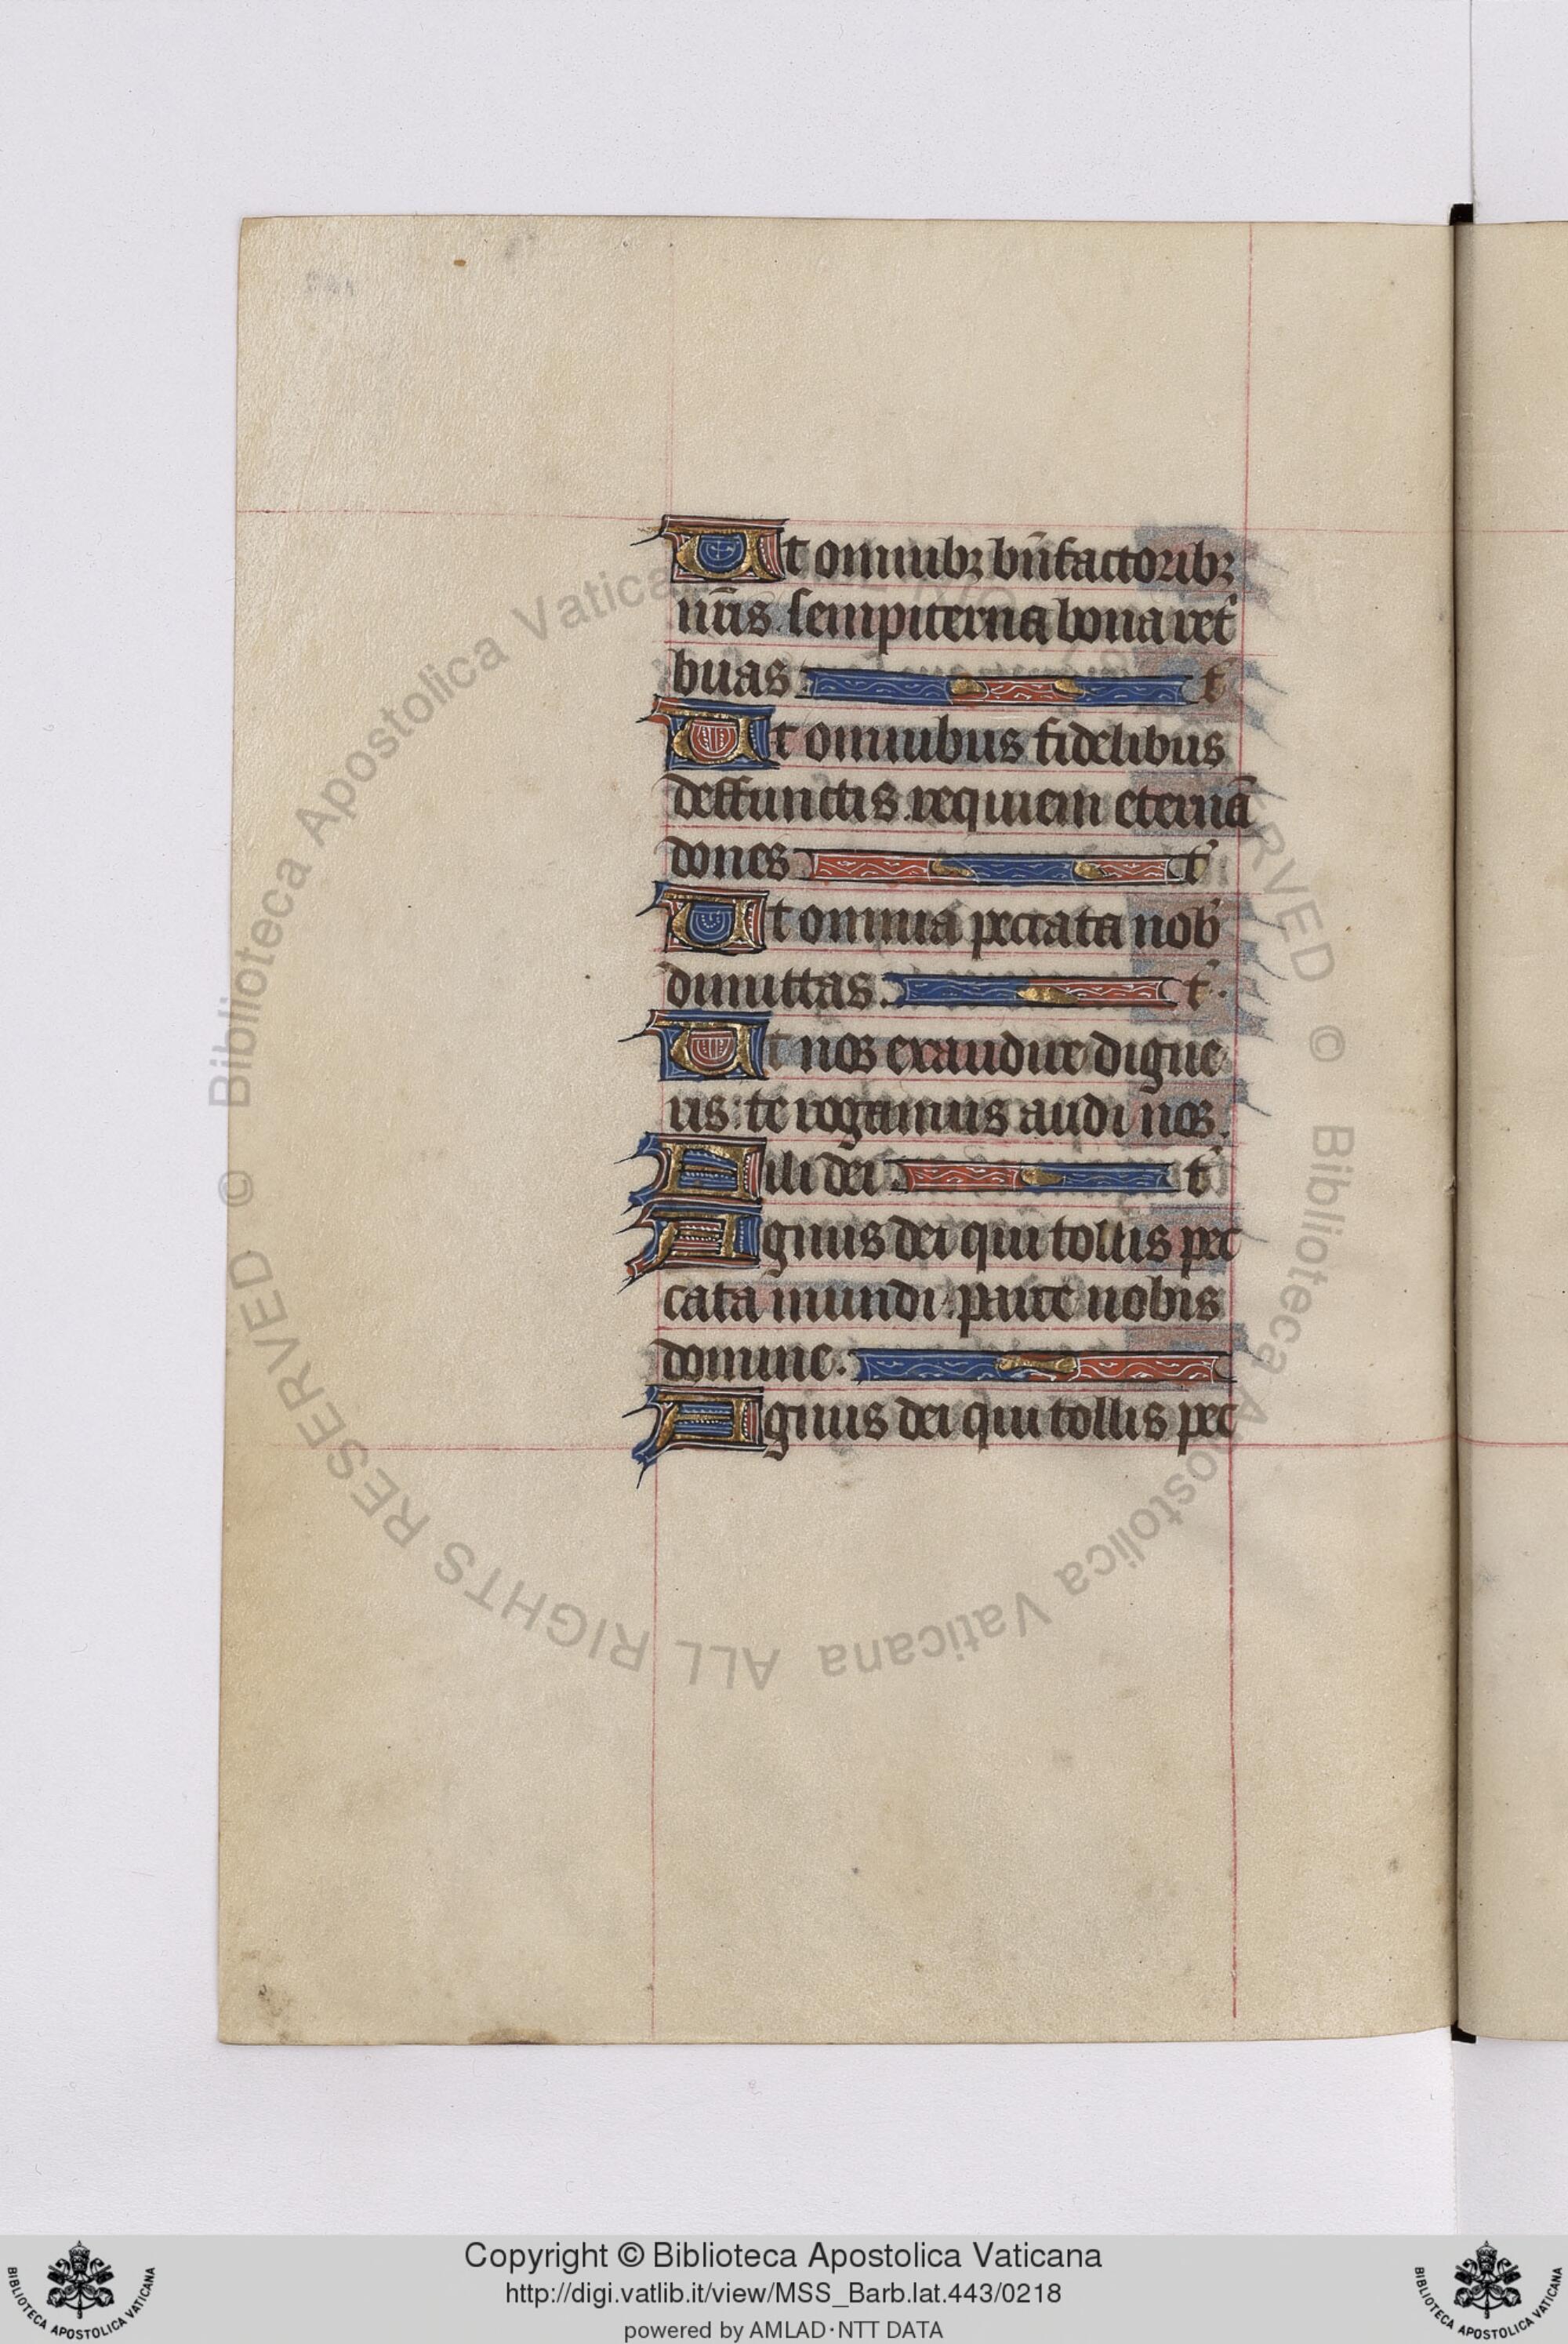 Ut omnibꝫ bn̄factoribꝫ
nr̄is sempiterna bona ret͛
buas t͛
Ut omnibus fidelibus
deffunctis requiem eternā
dones t͛
Ut omnia peccata nob̛
dimittas. t͛.
Ut nos exaudire digne
ris: te rogamus audi nos.
Fili dei. t͛
Agnus dei qui tollis pec
cata mundi. parce nobis
domine.
Agnus dei qui tollis pec
© Biblioteca Apostolica Vaticana ALL RIGHTS RESERVED © Biblioteca Apostolica Vaticana
Copyright © Biblioteca Apostolica Vaticana
http://digi.vatlib.it/view/MSS_Barb.lat.443/0218
powered by AMLAD·NTT DATA
BIBLIOTECA APOSTOLICA VATICANA
BIBLIOTECA APOSTOLICA VATICANA